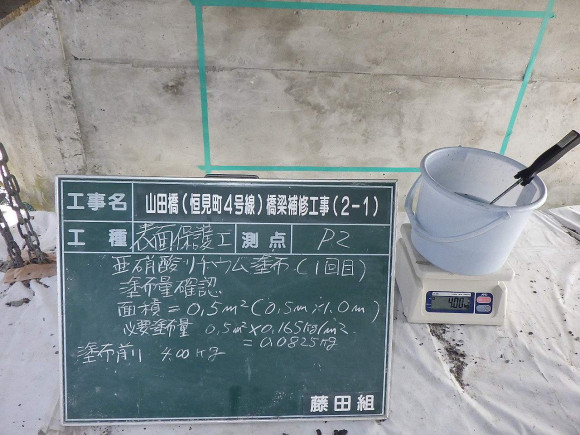 工事名 山田橋(恒見町4号線)橋梁補修工事(2-1)
工種 表面保護工 測点 P2
亜硝酸リチウム塗布(1回目)
塗布量確認
面積=0.5m²(0.5m×1.0m)
必要塗布量 0.5m²×0.165kg/m²
=0.0825kg
塗布前 4.00kg
藤田組
400